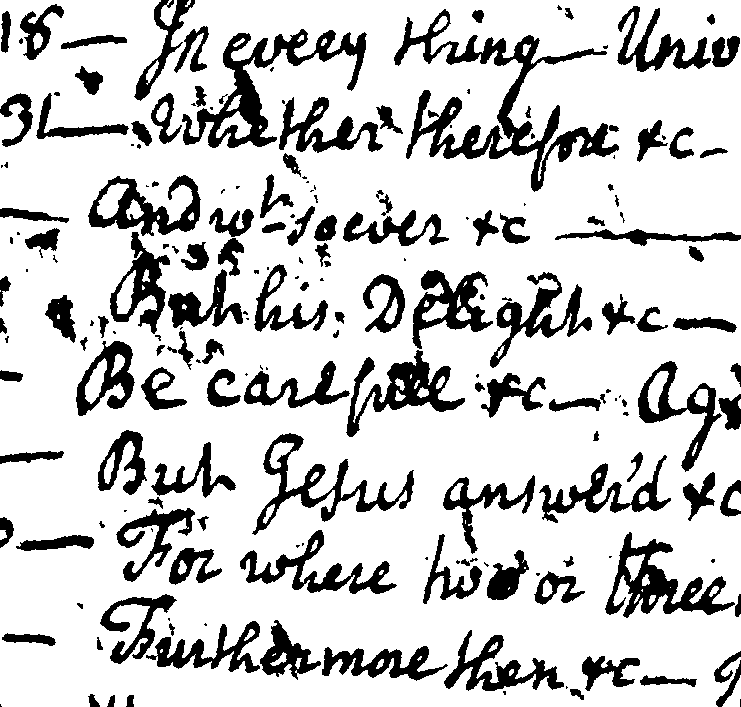 18 — In every thing — Univ
31 — Whether therefore &c —
— And wt. soever &c —
But his Delight &c —
— Be carefull &c — Ag
— But Jesus answer'd &c
— For where two or three
— Furthermore then &c —